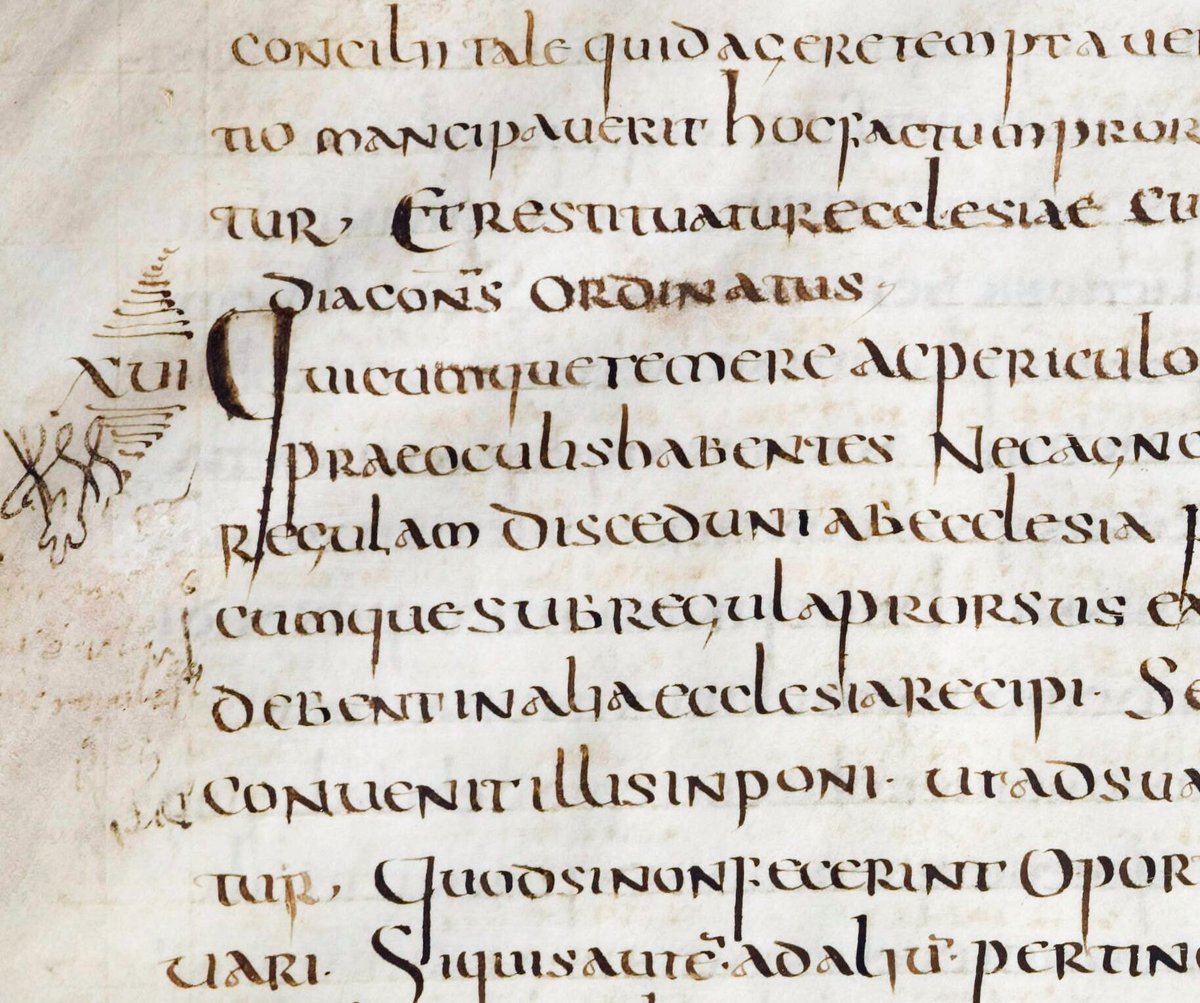 concilii tale quid agere temptaver
tio mancipaverit hoc factum pror
tur, Et restituatur ecclesiae cu
diacon̅s ordinatus,
XVI Quicumque temere ac periculo
prae oculis habentes Nec agno
Regulam discedunt ab ecclesia p
cumque sub regula prorsus ex
debent in alia ecclesia recipi. Se
convenit illis inponi. ut ad sua
tur, Quod si non fecerint Opor
vari. Si quis aute̅. ad aliu̅. pertine